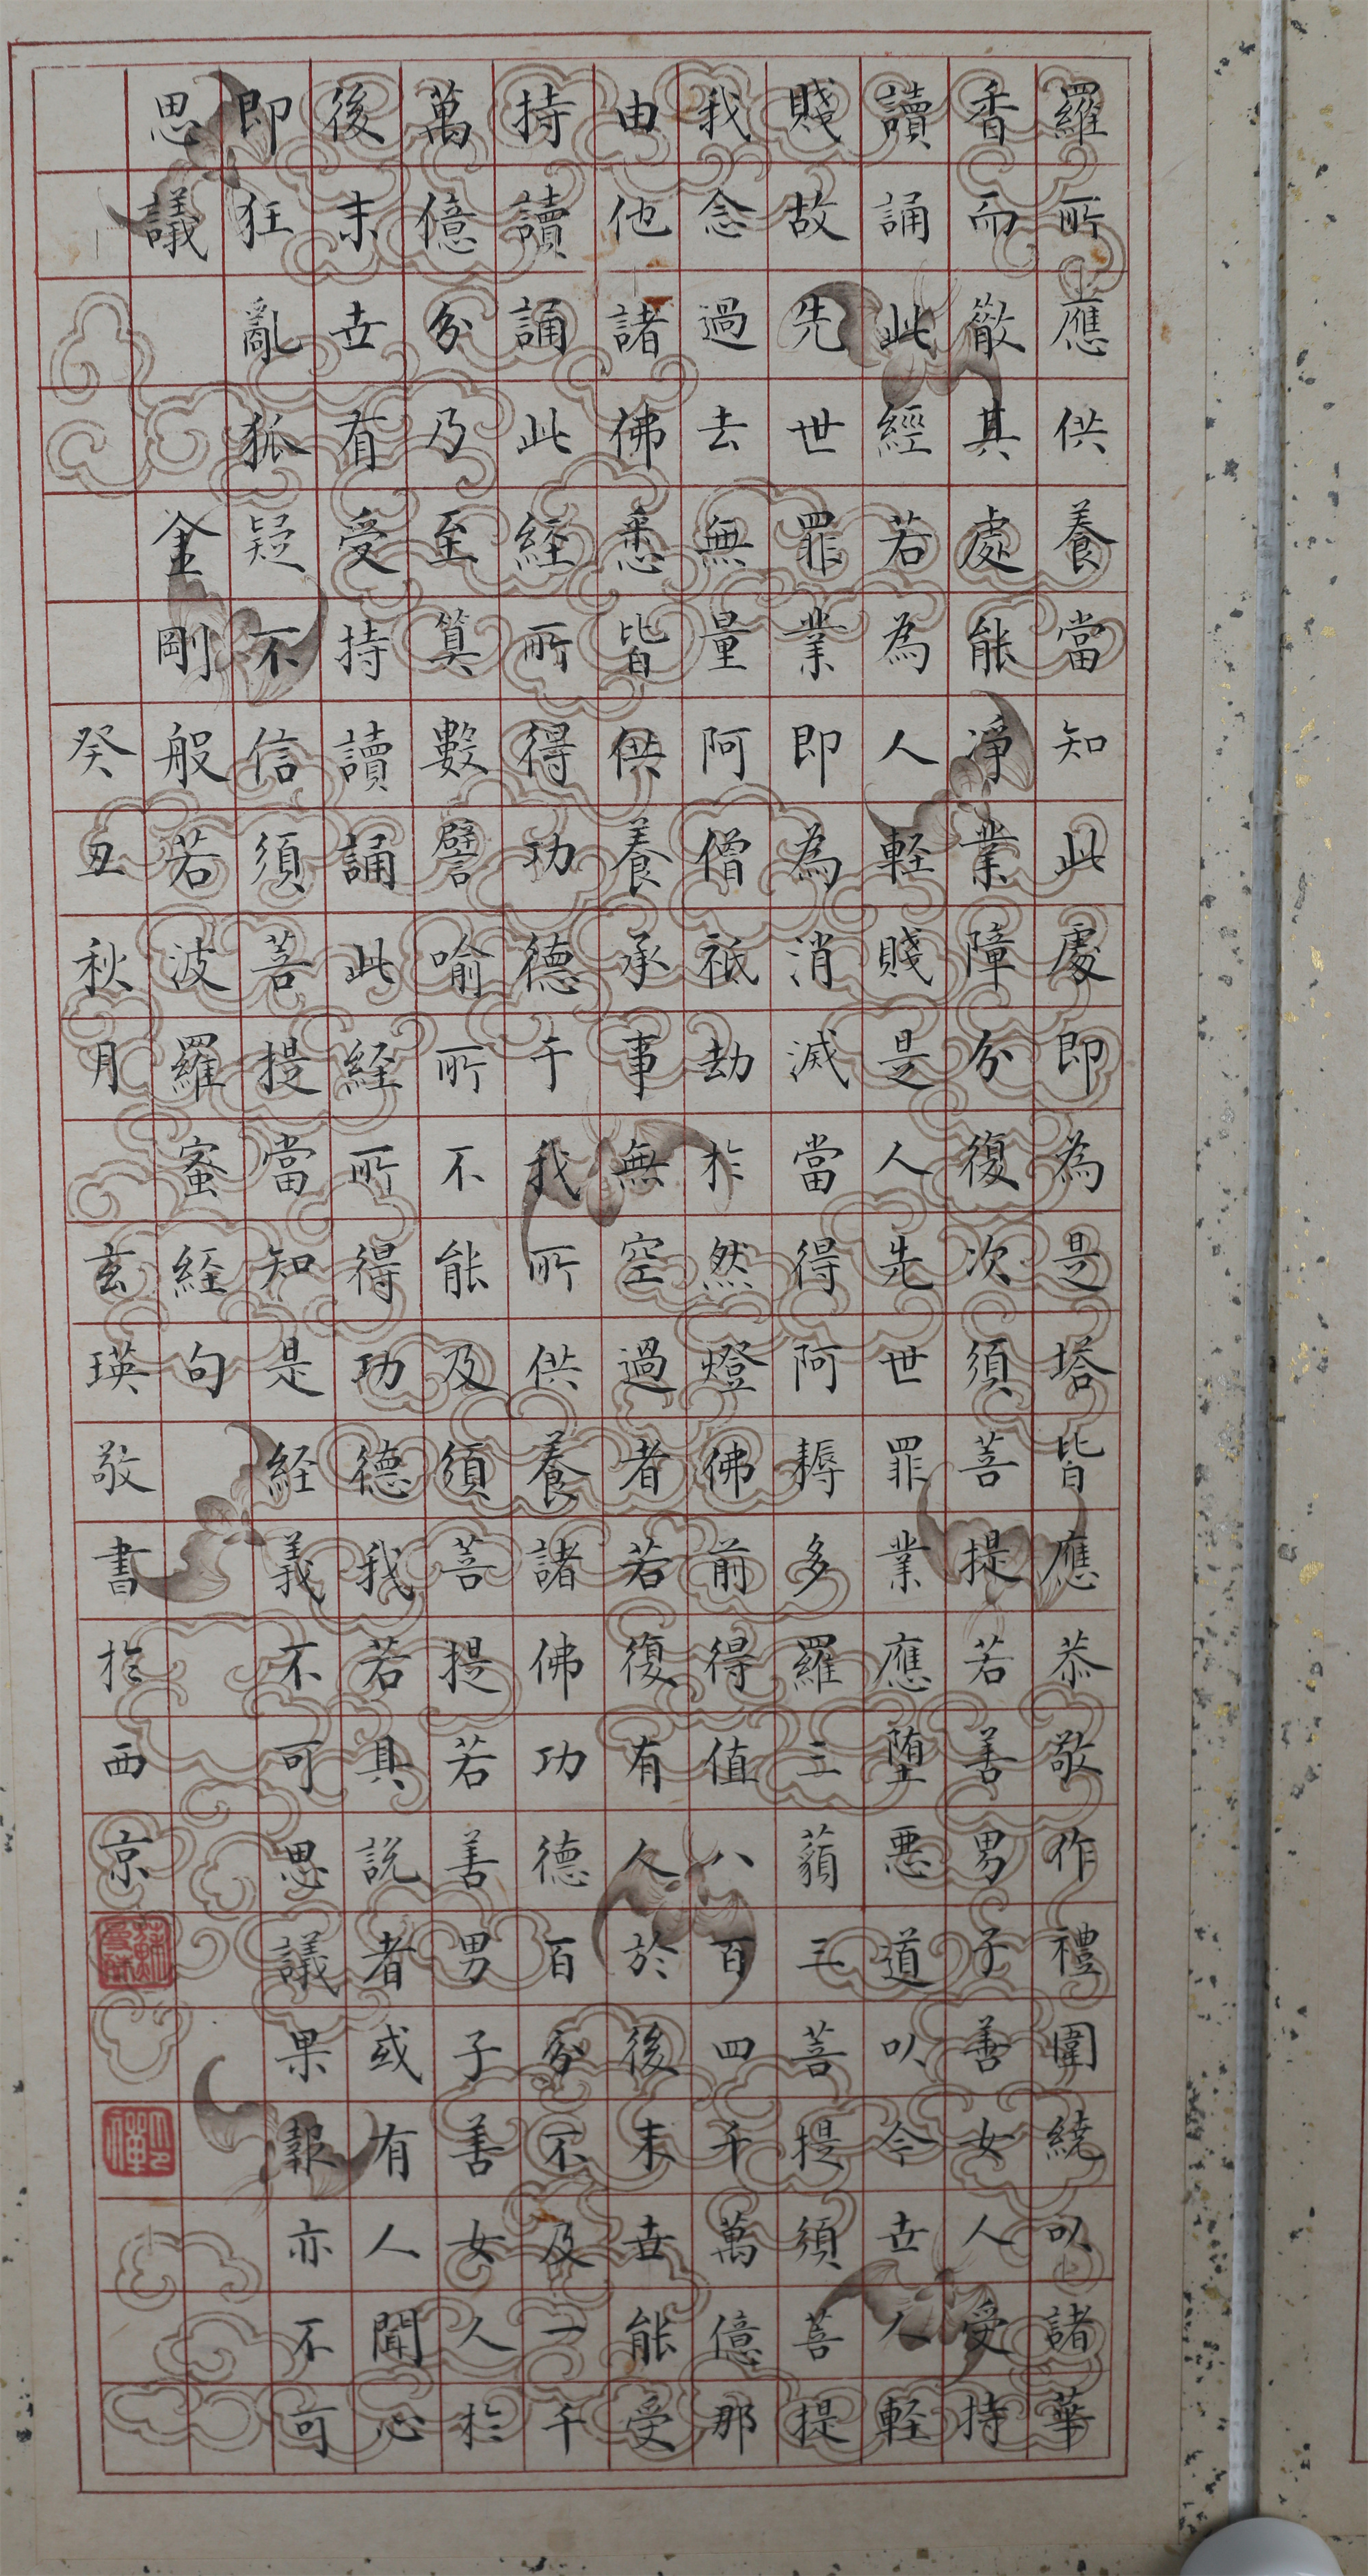 羅所應供養當知此處即為是塔皆應恭敬作禮圍繞以諸華
香而散其處能淨業障分復次須菩提若善男子善女人受持
讀誦此經若為人軽賤是人先世罪業應堕悪道以今世人軽
賤故先世罪業即為消滅當得阿耨多羅三藐三菩提須菩提
我念過去無量阿僧祇劫於然燈佛前得值八百四千萬億那
由他諸佛悉皆供養承事無空過者若復有人於後末世能受
持讀誦此経所得功德于我所供養諸佛功德百分不及一千
萬億分乃至算數譬喻所不能及須菩提若善男子善女人於
後末世有受持讀誦此経所得功德我若具說者或有人聞心
即狂亂狐疑不信須菩提當知是経義不可思議果報亦不可
思議 金剛般若波羅蜜経句
癸丑秋月 玄瑛敬書於西京